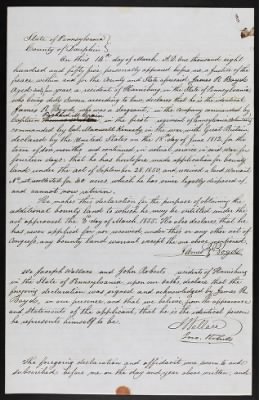 State of Pennsylvania
County of Dauphin
On this 14th day of March A.D. one thousand eight
hundred and fifty five personally appeared before me a justice of the
peace within and for the County and State aforesaid James R. Boyd
aged years a resident of Harrisburg in the State of Pennsylvania
who being duly sworn according to law, declares that he is the identical
James R. Boyd who was a sergeant, in the company commanded by
Captain Richard M. Crain in the first regiment of Pennsylvania
commanded by Col. Maxwell Kennedy in the war with Great Britain
declared by the United States on the 18th day of June 1812, for the
term of six months and continued in actual service in said war for
fourteen days: that he has heretofore made application for bounty
land under the act of September 28, 1850, and received a land Warrant
No for 40 acres which he has since legally disposed of
and cannot now return.
He makes this declaration for the purpose of obtaining the
additional bounty land to which he may be entitled under the
act approved the 3d day of March 1855. He also declares, that he
has never applied for nor received under this or any other act of
Congress, any bounty land warrant except the one above mentioned.
James R. Boyd
We Joseph Wallace and John Roberts residents of Harrisburg
in the State of Pennsylvania upon our oaths, declare that the
foregoing declaration was signed and acknowledged by James R.
Boyd, in our presence and that we believe from the appearance
and statements of the applicant, that he is the identical person
he represents himself to be.
J Wallace
Jno. Roberts
The foregoing declaration and affidavit were sworn to and
subscribed before me on the day and year above written; and